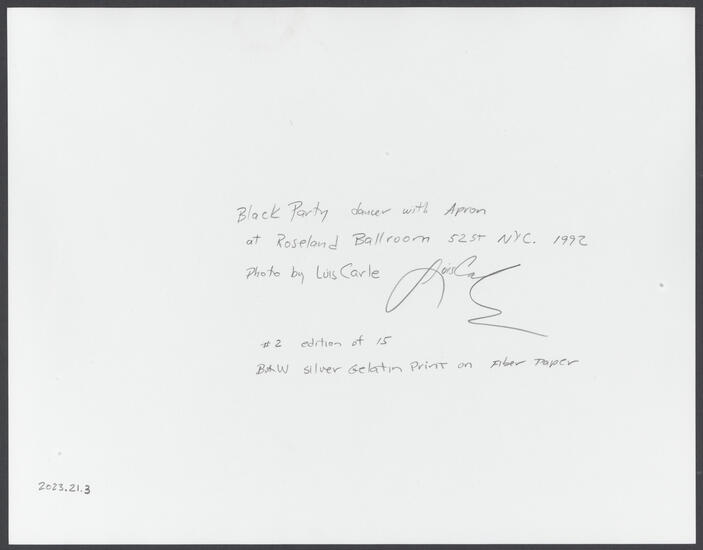 Black Party dancer with Apron
at Roseland Ballroom 52ST NYC. 1992
Photo by Luis Carle LuisCa
#2 edition of 15
B&W silver Gelatin Print on Fiber Paper
2023.21.3